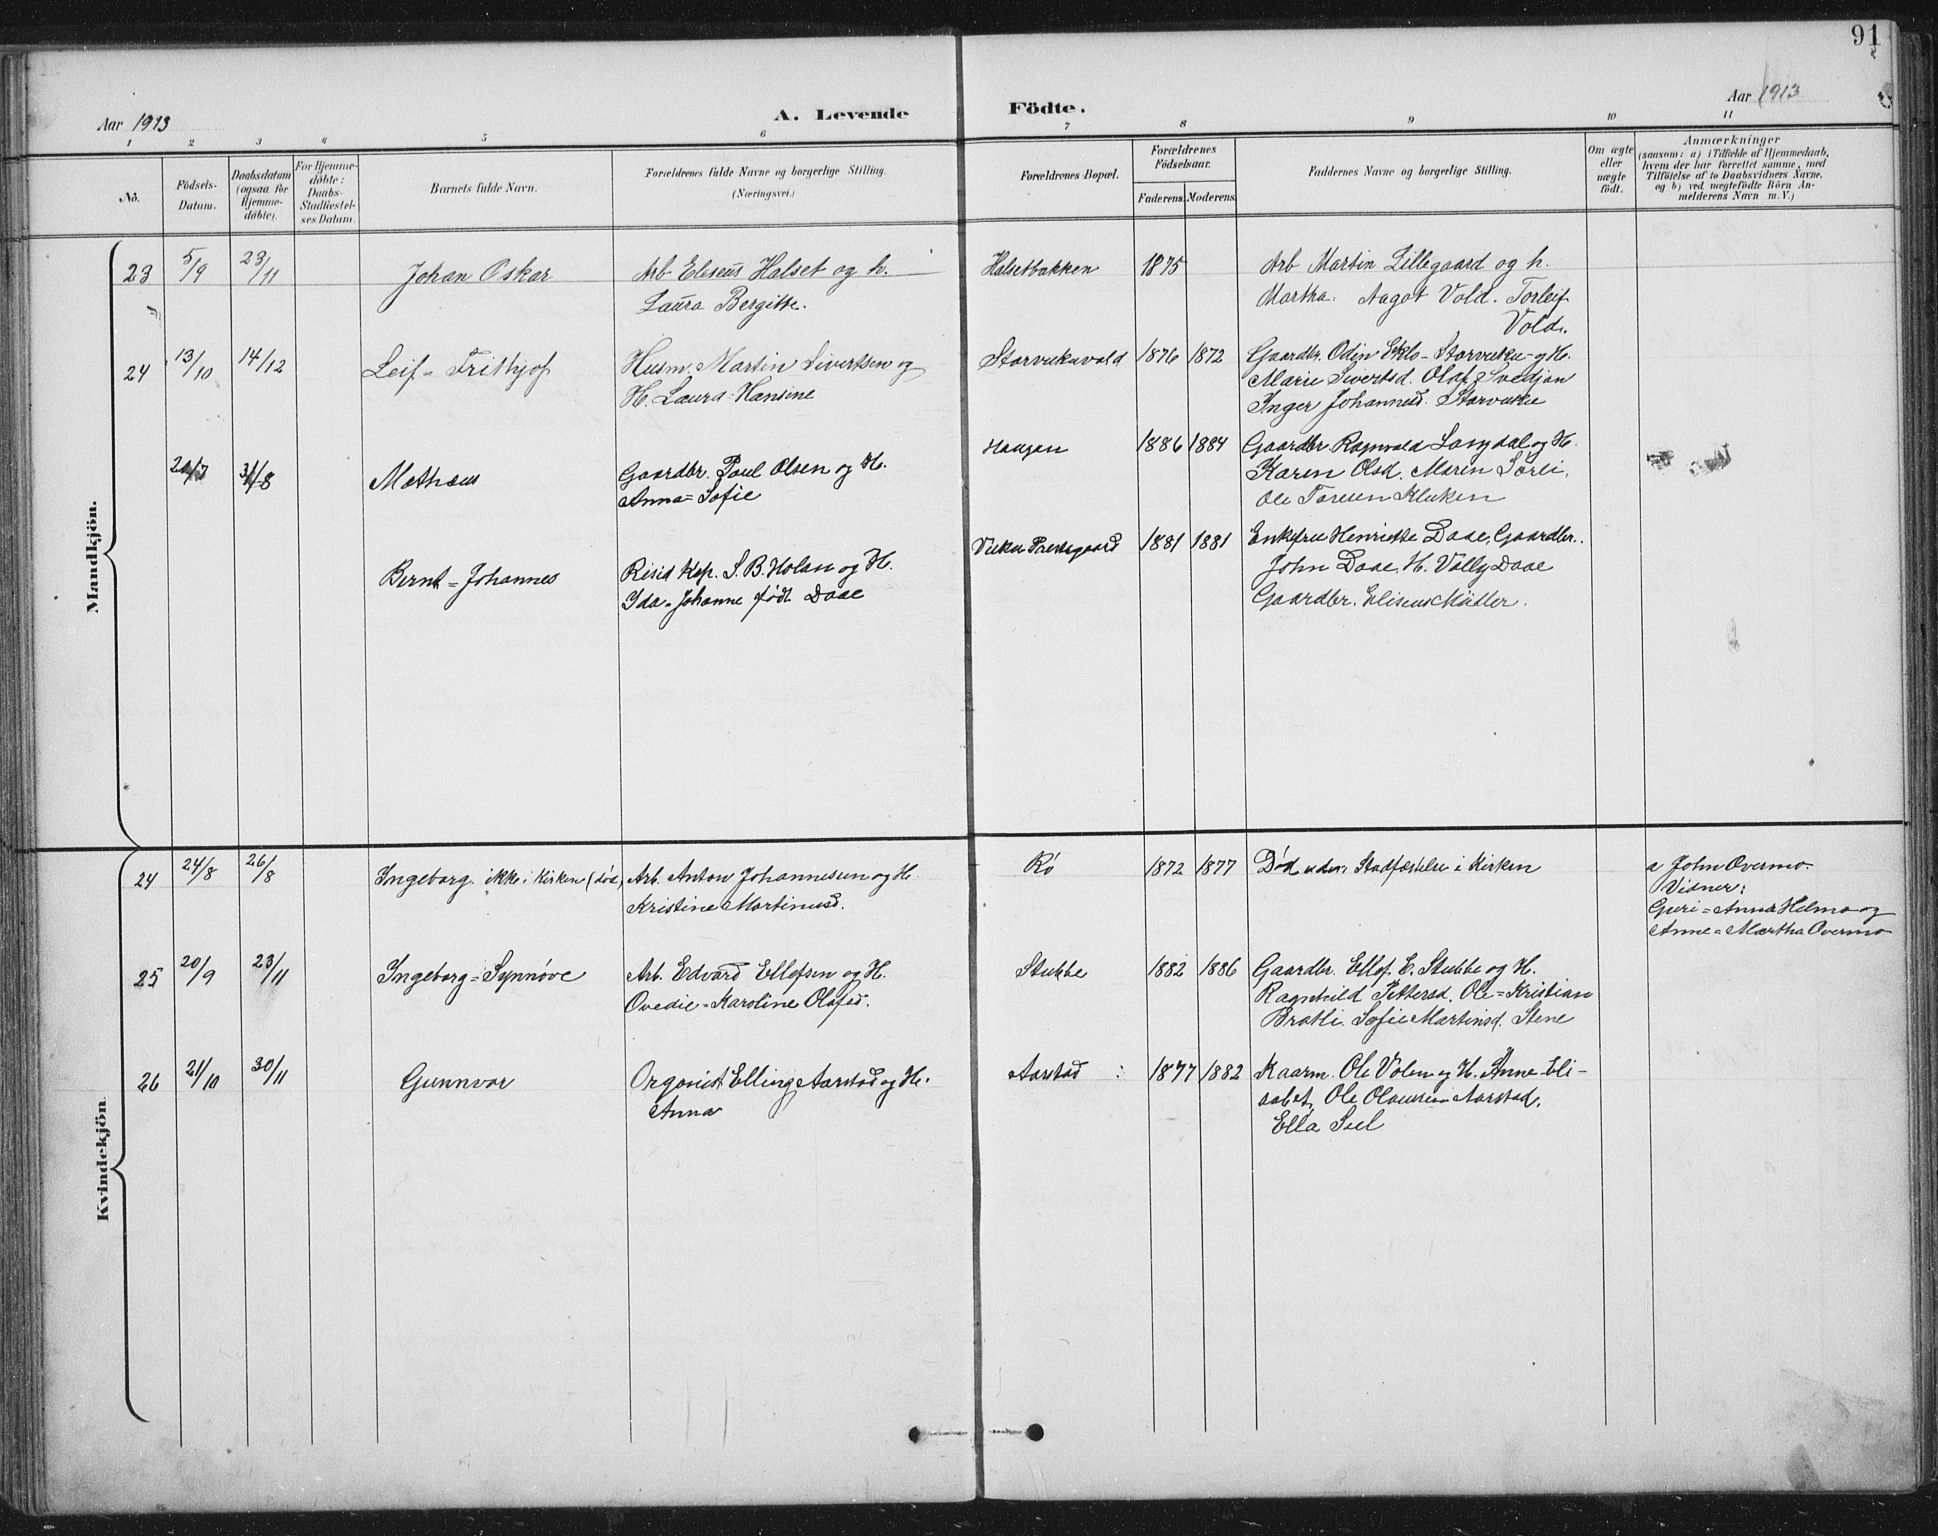 91
Aar 1913
A. Levende
Födte.
Aar 1913
1 2 3 4 5 6 7 8 9 10 11
No.
Födsels-
Datum.
Daabsdatum
(ogsaa for
Hjemme-
döbte).
For Hjemme-
döbte:
Daabs-
Stadfæstel-
ses Datum.
Barnets fulde Navn.
Forældrenes fulde Navne og borgerlige Stilling.
(Næringsvei.)
Forældrenes Bopæl.
Forældrenes
Födselsaar.
Faderens. Moderens.
Faddernes Navne og borgerlige Stilling.
Om ægte
eller
uægte
födt.
Anmærkninger
(saasom: a) i Tilfælde af Hjemmedaab,
hvem der har forrettet samme, med
Tilföielse af to Daabsvidners Navne,
og b) ved uægtefödte Börn An-
melderens Navn m. V.)
Mandkjön.
23 5/9 23/11 Johan Oskar
Arb Eliseus Halset og h.
Laura Bergitte.
Halsetbakken 1875
Arb Martin Lillegaard og h.
Martha. Aagot Vold. Torleif
Vold.
24 13/10 14/12 Leif = Frithjof
Husm. Martin Sivertsen og
H. Laura = Hansine
Storvukuvald 1876 1872
Gaardbr. Odin Eklo - Storvuku - og H.
Marie Sivertsd. Olaf Svedjan
Inger Johannesd. Storvuku
31/8 Mathæus
Gaardbr. Poul Olsen og H.
Anna = Sofie
Haugan 1886 1884
Gaardbr Ragnvald Langdal og H.
Karen Olsd. Maren Sørli.
Ole Kluken
Bernt = Johannes
Resid Kap. S. B. Holan og H.
Ida = Johanne født Daae
Vuku Prestegaard 1881 1881
Enkefru Henriette Daae, Gaardbr.
John Daae, H. Vally Daae
Gaardbr. Eliseus Müller.
Kvindekjön
24 24/8 26/8 Ingeborg ikke i Kirken (død)
Arb. Anton Johannesen og H.
Kristine Martinusd.
Rö 1872 1877
Död uden Stadfæstelse i Kirken
a John Overmo
Vidner:
Guri = Anna Helmo og
Anne = Martha Overmo
25 20/9 23/11 Ingeborg = Synnøve
Arb. Edvard Ellefsen og H.
Ovedie = Karoline Olafsd.
Stubbe 1882 1886
Gaardbr. Ellef E. Stubbe og H.
Ragnhild Pettersd. Ole = Kristian
Bratli. Sofie Martinsd. Stene
26 21/10 30/11 Gunnvor
Organist Elling Aarstad og H.
Anna
Aarstad 1877 1882
Kaarm. Ole Volen og H. Anne Eli-
sabet, Ole Olausen Aarstad,
Ella Suul